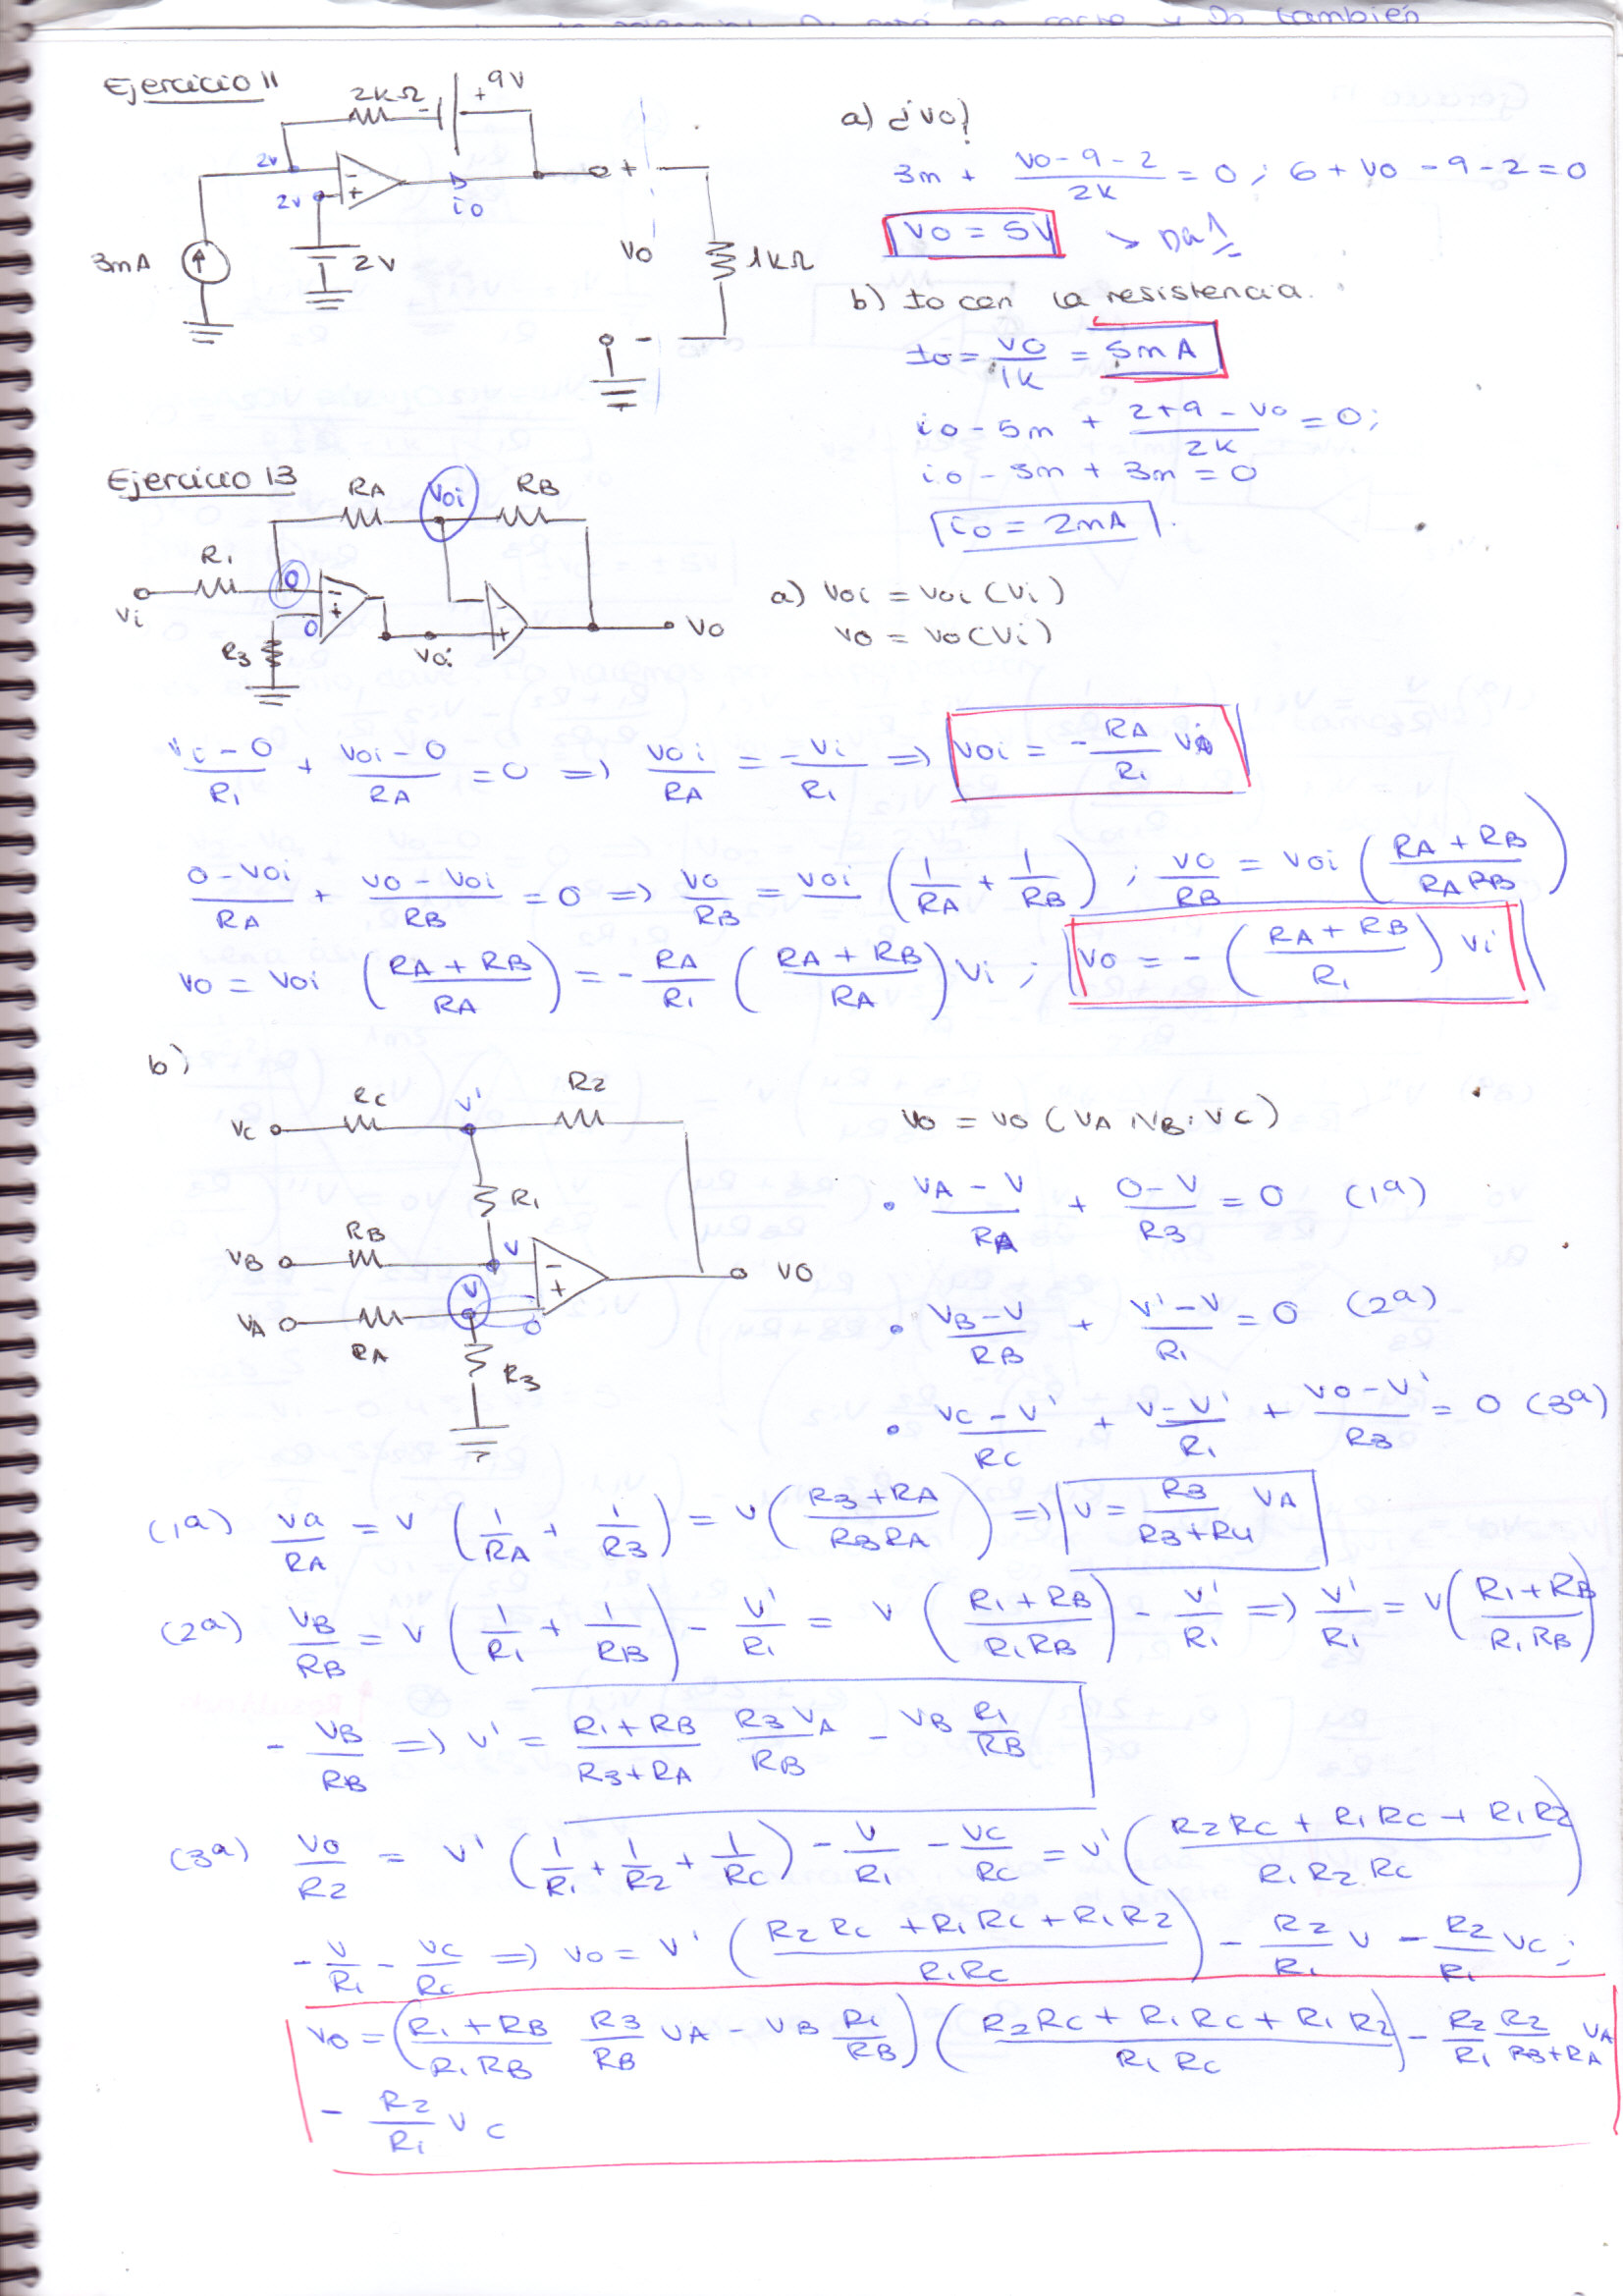 Ejercicio 11
2kΩ
- + 9V
2v
2v
- +
io
3mA
2V
o +
Vo
1kΩ
-
a) ¿Vo?
3m + (Vo - 9 - 2)/2k = 0 ; 6 + Vo - 9 - 2 = 0
Vo = 5V
b) Io con la resistencia.
Io = Vo/1k = 5mA
io - 5m + (2+9 - Vo)/2k = 0;
io - 5m + 3m = 0
io = 2mA
Ejercicio 13
RA Voi RB
R1
Vi
0
0
- +
R3
Voi
- +
Vo
a) Voi = Voi (Vi)
Vo = Vo (Vi)
(Vi - 0)/R1 + (Voi - 0)/RA = 0 => Voi/RA = -Vi/R1 => Voi = - RA/R1 Vi
(0 - Voi)/RA + (Vo - Voi)/RB = 0 => Vo/RB = Voi (1/RA + 1/RB) ; Vo/RB = Voi ((RA + RB)/(RA RB))
Vo = Voi ((RA + RB)/RA) = - RA/R1 ((RA + RB)/RA) Vi ; Vo = - ((RA + RB)/R1) Vi
b)
RC V' R2
VC
R1
RB
VB
V
V
- +
0
VA
RA
R3
VO
Vo = Vo (VA, VB, VC)
• (VA - V)/RA + (0 - V)/R3 = 0 (1ª)
• (VB - V)/RB + (V' - V)/R1 = 0 (2ª)
• (VC - V')/RC + (V - V')/R1 + (Vo - V')/R3 = 0 (3ª)
(1ª) Va/RA = V (1/RA + 1/R3) = V ((R3 + RA)/(R3 RA)) => V = R3/(R3 + R4) VA
(2ª) VB/RB = V (1/R1 + 1/RB) - V'/R1 = V ((R1 + RB)/(R1 RB)) - V'/R1 => V'/R1 = V ((R1 + RB)/(R1 RB))
- VB/RB => V' = (R1 + RB)/(R3 + RA) R3 VA/RB - VB R1/RB
(3ª) Vo/R2 = V' (1/R1 + 1/R2 + 1/RC) - V/R1 - VC/RC = V' ((R2 RC + R1 RC + R1 R2)/(R1 R2 RC))
- V/R1 - VC/RC => Vo = V' ((R2 RC + R1 RC + R1 R2)/(R1 RC)) - R2/R1 V - R2/R1 VC ;
Vo = ((R1 + RB)/(R1 RB) R3/RB VA - VB R1/RB) ((R2 RC + R1 RC + R1 R2)/(R1 RC)) - R2/R1 R2/(R3 + RA) VA
- R2/R1 VC